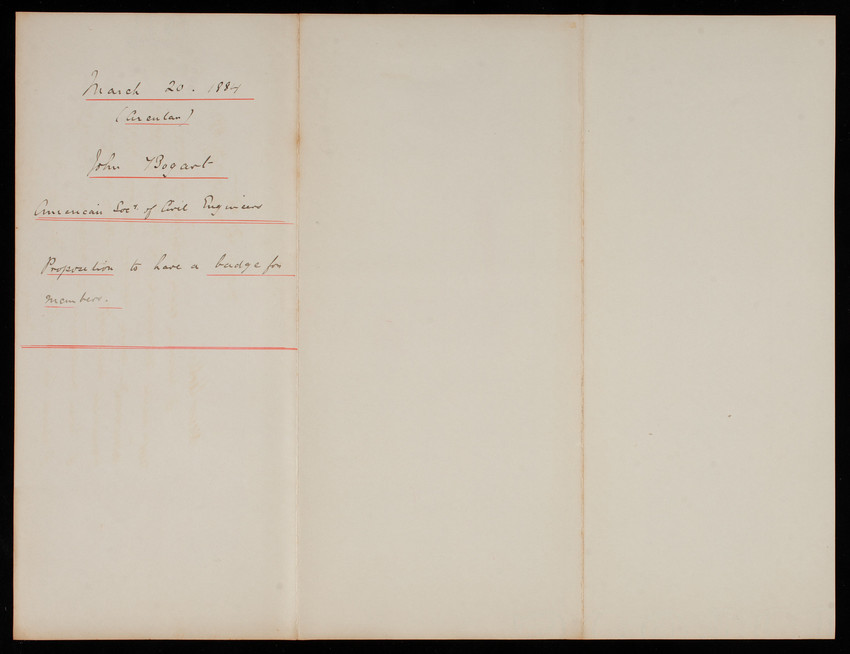 March 20. 1884
(Circular)
John Bogart
American Socy of Civil Engineers
Proposition to have a badge for
members.